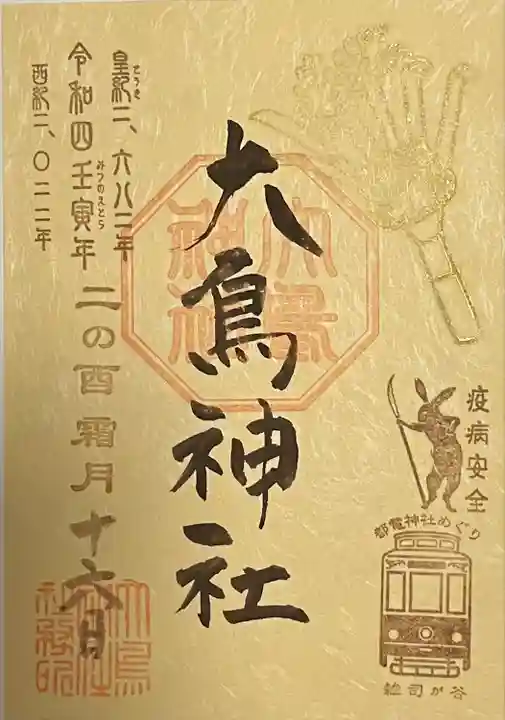 疫病安全
都電神社めぐり
雑司が谷
大鳥神社
大鳥
神社
二の酉霜月十六日
皇紀二、六八二年
こうき
令和四壬寅年
みづのえとら
西紀二、〇二二年